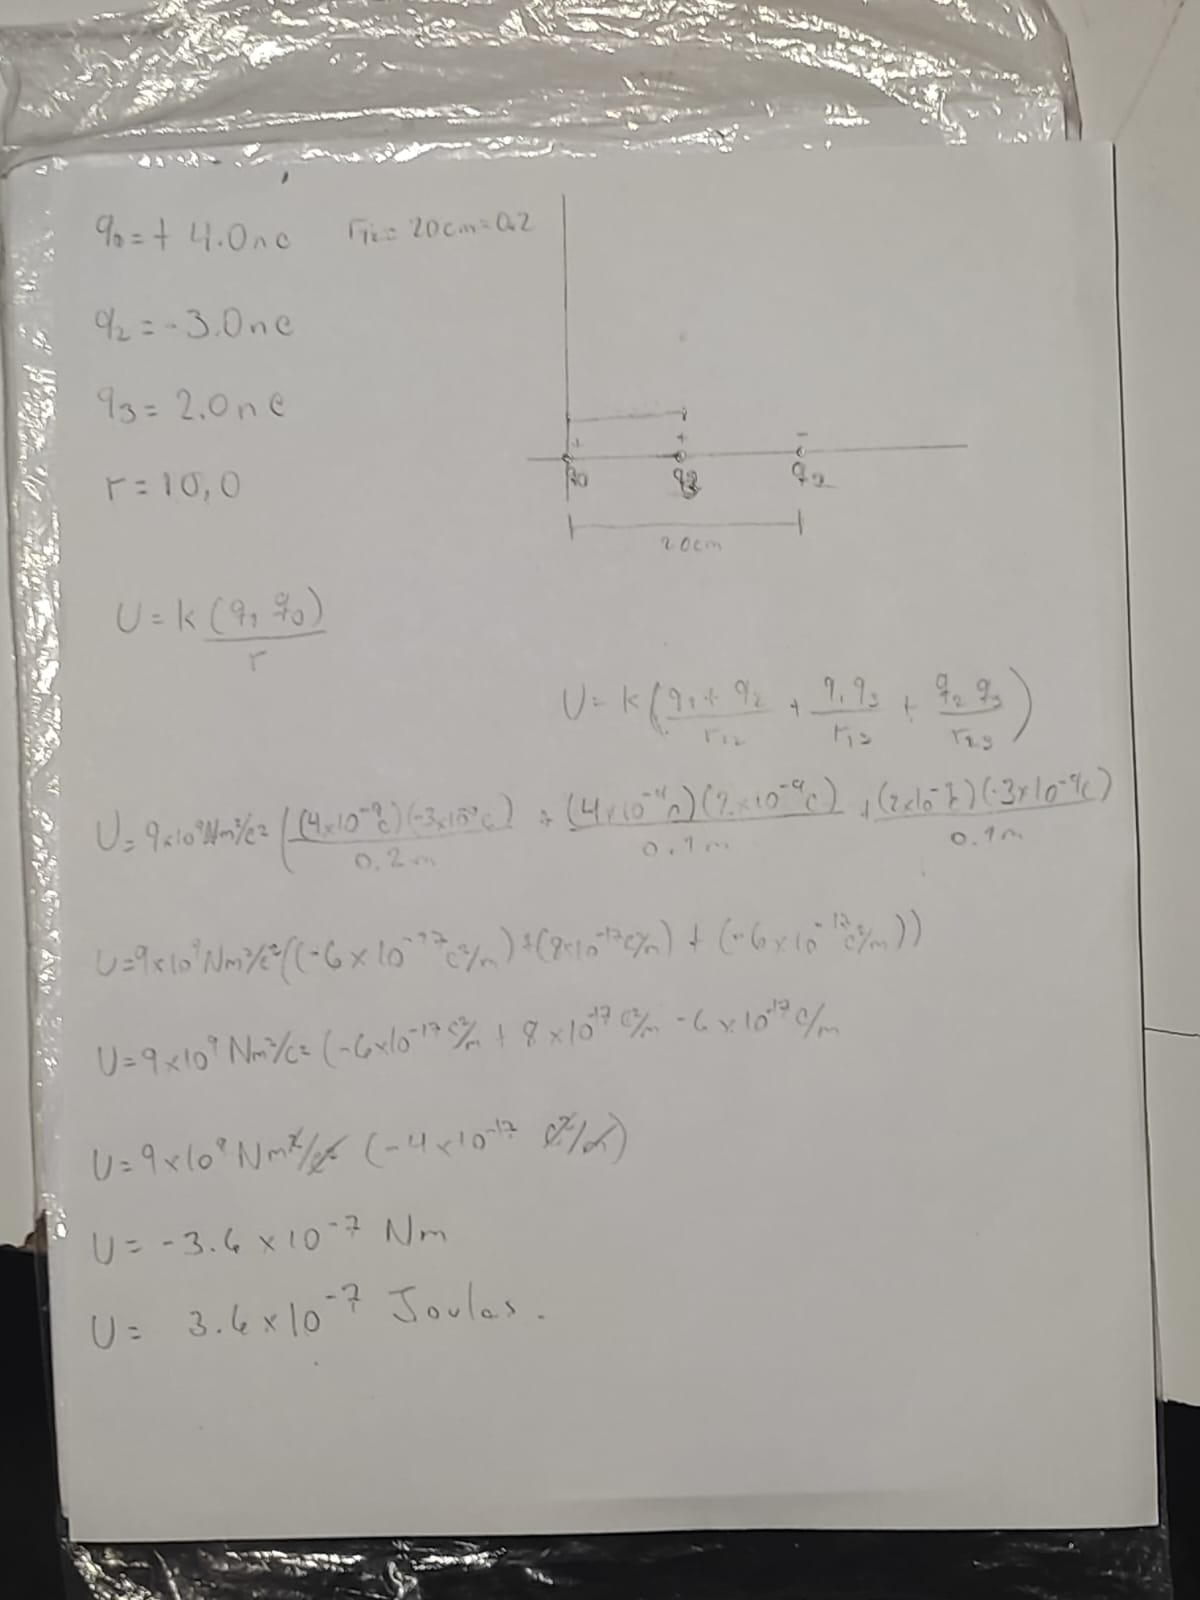 q₀ = + 4.0nc r₁₂ = 20cm = 0.2
q₂ = -3.0nc
q₃ = 2.0nc
r = 10,0
+ + -
q₀ q₃ q₂
20cm
U = k (q₁ q₀) / r
U = k ( q₁ + q₂ / r₁₂ + q₁ q₃ / r₁₃ + q₂ q₃ / r₂₃ )
U = 9x10⁹Nm²/c² ( (4x10⁻⁹c)(-3x10⁻⁹c) / 0.2m + (4x10⁻⁹c)(2x10⁻⁹c) / 0.1m + (2x10⁻⁹c)(-3x10⁻⁹c) / 0.1m
U = 9x10⁹Nm²/c² ((-6x10⁻¹⁷c²/m) + (8x10⁻¹⁷c²/m) + (-6x10⁻¹⁷c²/m))
U = 9x10⁹ Nm²/c² (-6x10⁻¹⁷c²/m + 8x10⁻¹⁷c²/m - 6x10⁻¹⁷c/m
U = 9x10⁹ Nm²/c² (-4x10⁻¹⁷ c²/m)
U = -3.6 x10⁻⁷ Nm
U = 3.6x10⁻⁷ Joules.